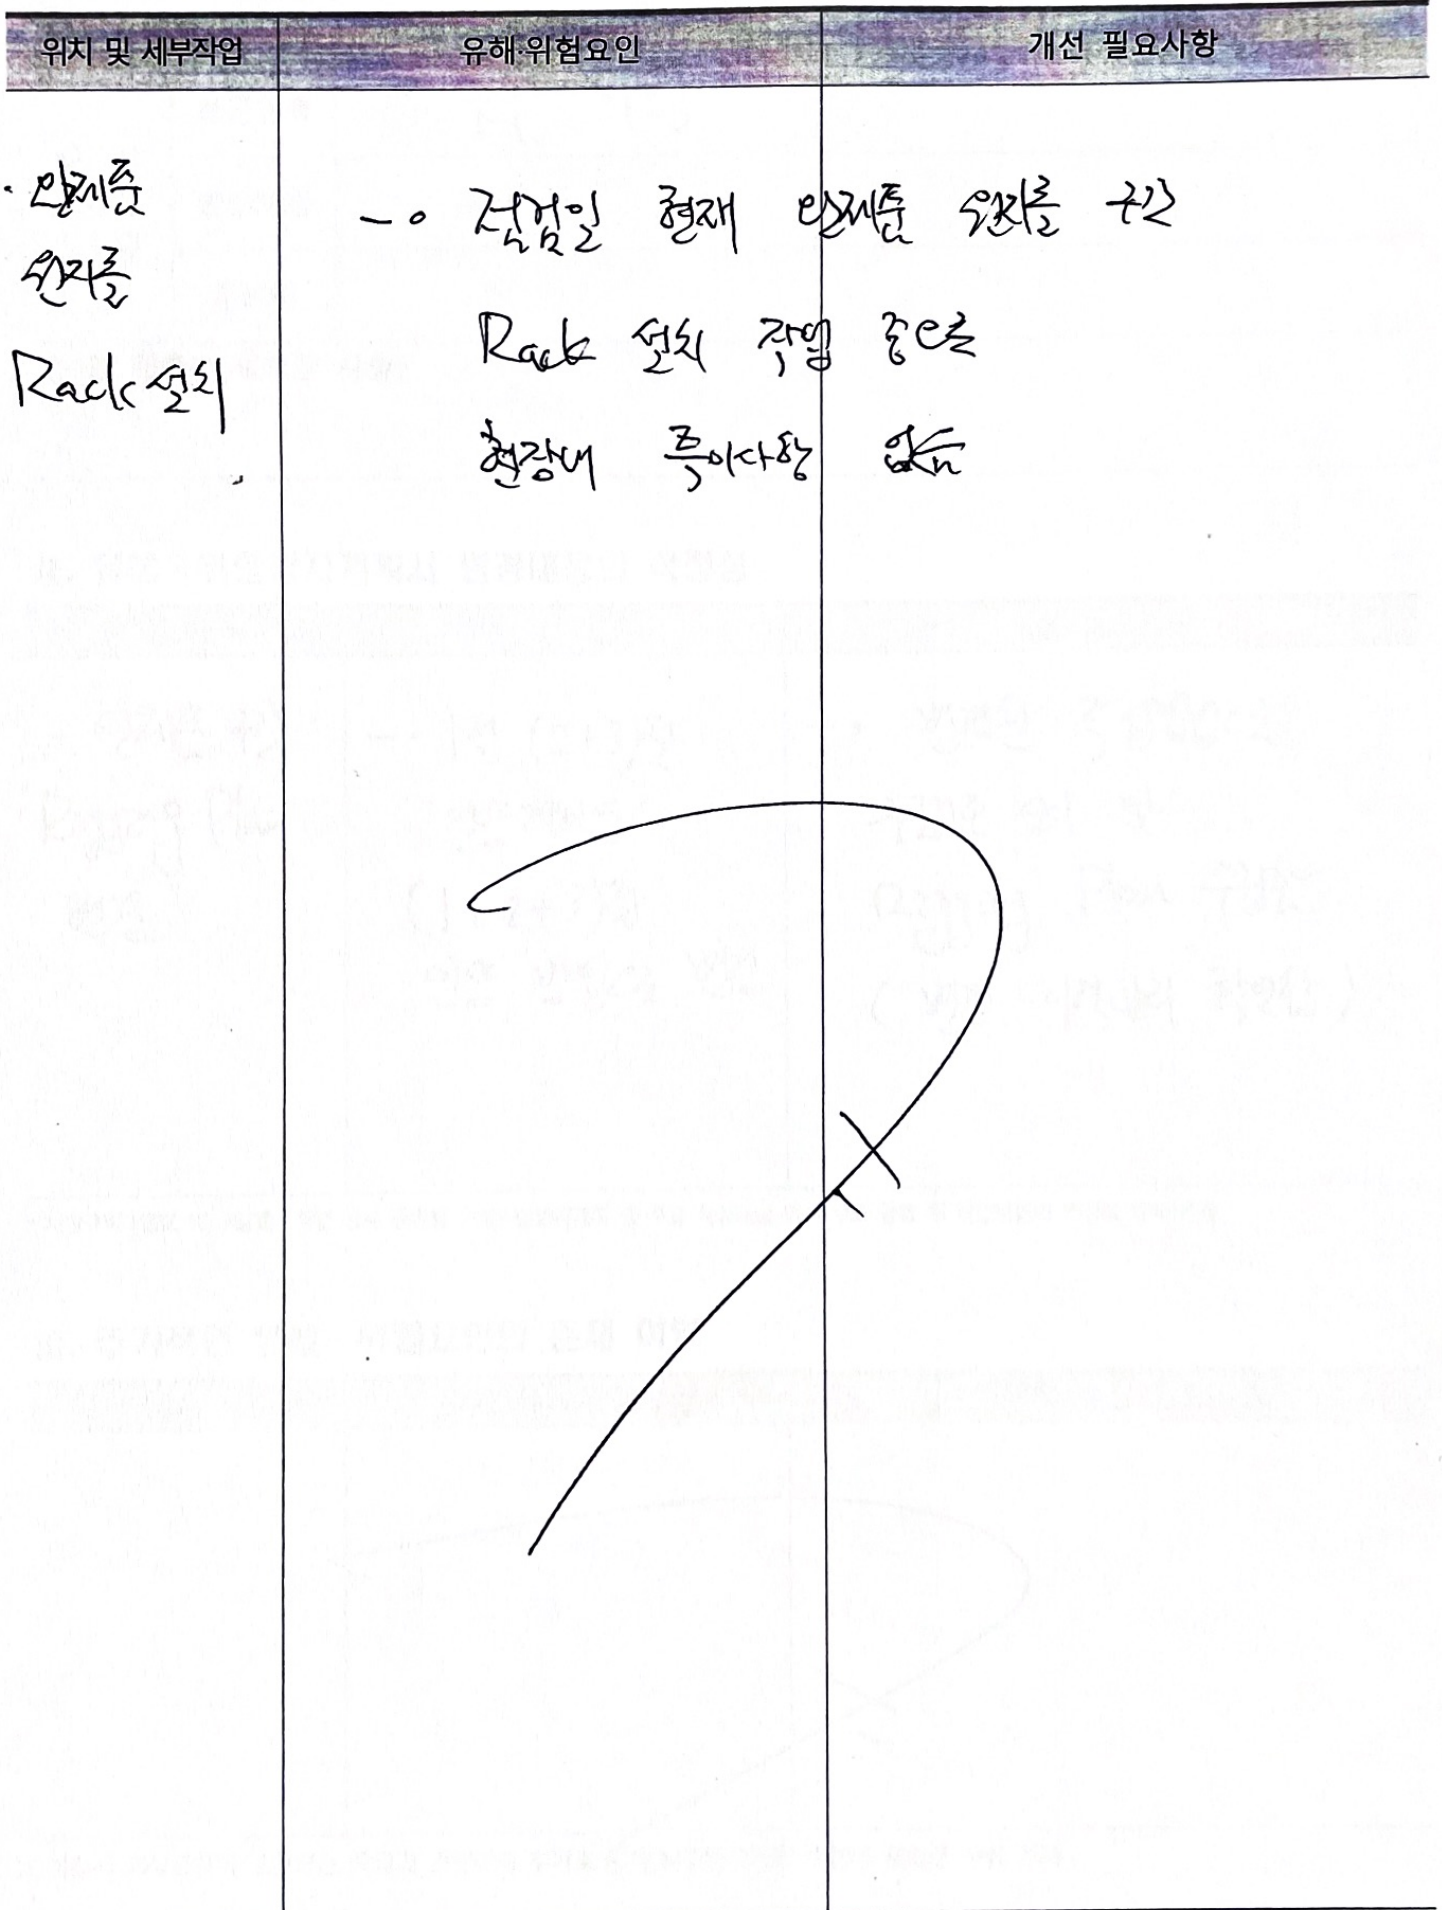 위치 및 세부작업 유해·위험요인 개선 필요사항
· 완제품
원자를
Rack 설치
- o 점검일 현재 완제품 원자를 구간
Rack 설치 작업 중으로
현장내 특이사항 없음